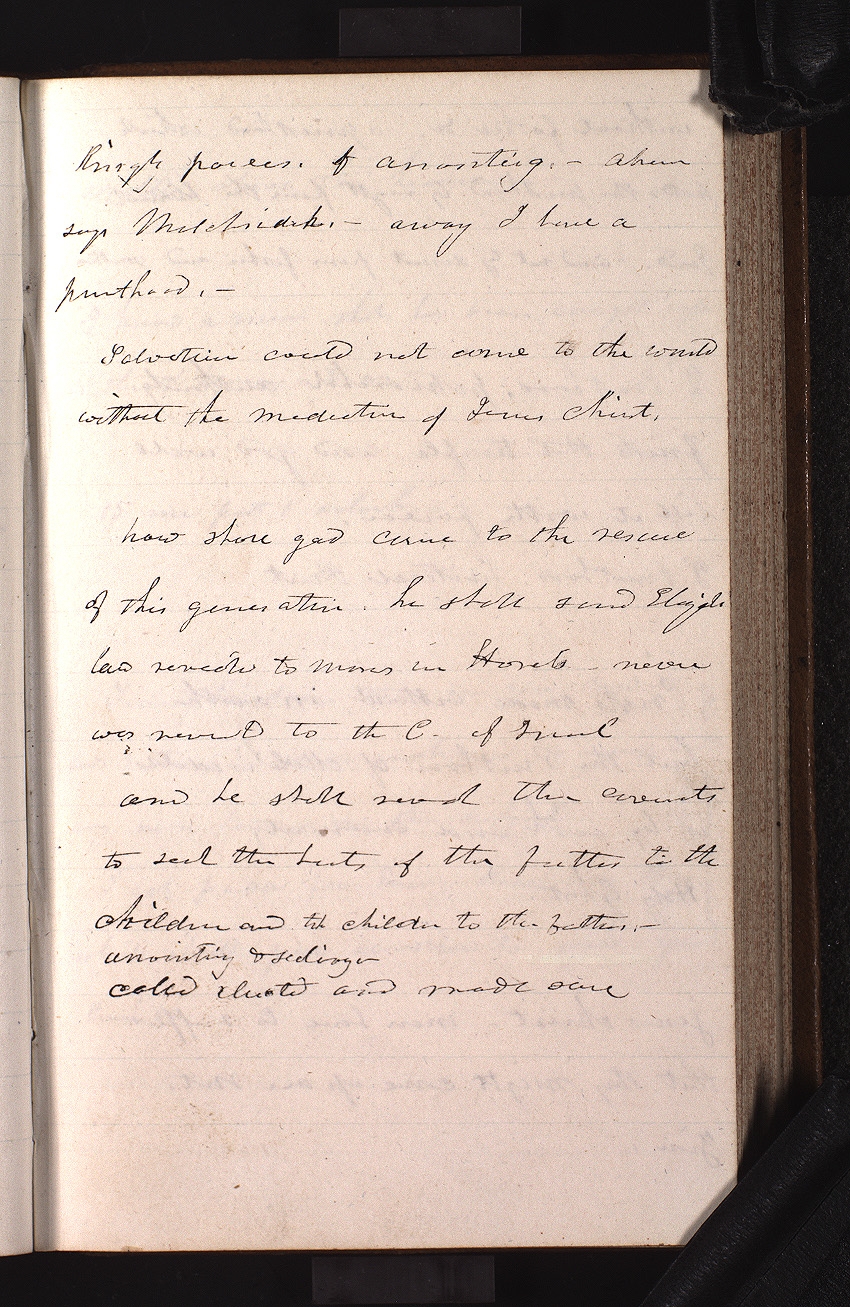 Kingly powers. of anointing. – Abram
says Melchisedek. – away I have a
priesthood. –
Salvation could not come to the world
without the mediation of Jesus Christ.
how shall god come to the rescue
of this generation. he shall send Elijah
law revealed to Moses in Horeb – never
was reveald to the C. of Israel
and he shall reveal the covenants
to seal the hearts of the fathers to the
children and the children to the fathers. –
anointing & sealing –
called elected and made sure